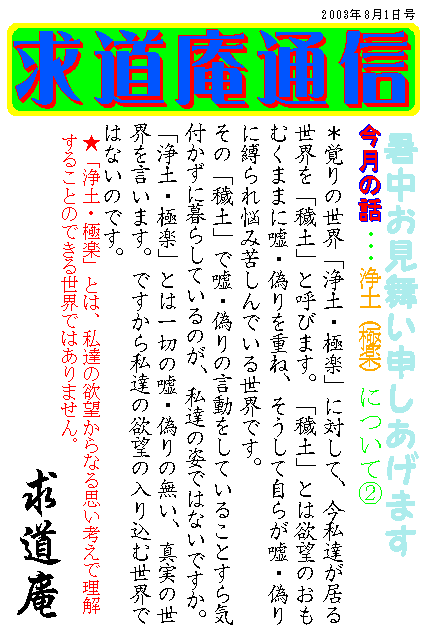 2003年8月1日号
求道庵通信
暑中お見舞い申しあげます
今月の話・・・浄土（極楽）について②
＊覚りの世界「浄土・極楽」に対して、今私達が居る
世界を「穢土」と呼びます。「穢土」とは欲望のおも
むくままに嘘・偽りを重ね、そうして自らが嘘・偽り
に縛られ悩み苦しんでいる世界です。
その「穢土」で嘘・偽りの言動をしていることすら気
付かずに暮らしているのが、私達の姿ではないですか。
「浄土・極楽」とは一切の嘘・偽りの無い、真実の世
界を言います。ですから私達の欲望の入り込む世界で
はないのです。
★「浄土・極楽」とは、私達の欲望からなる思い考えで理解
することのできる世界ではありません。
求道庵